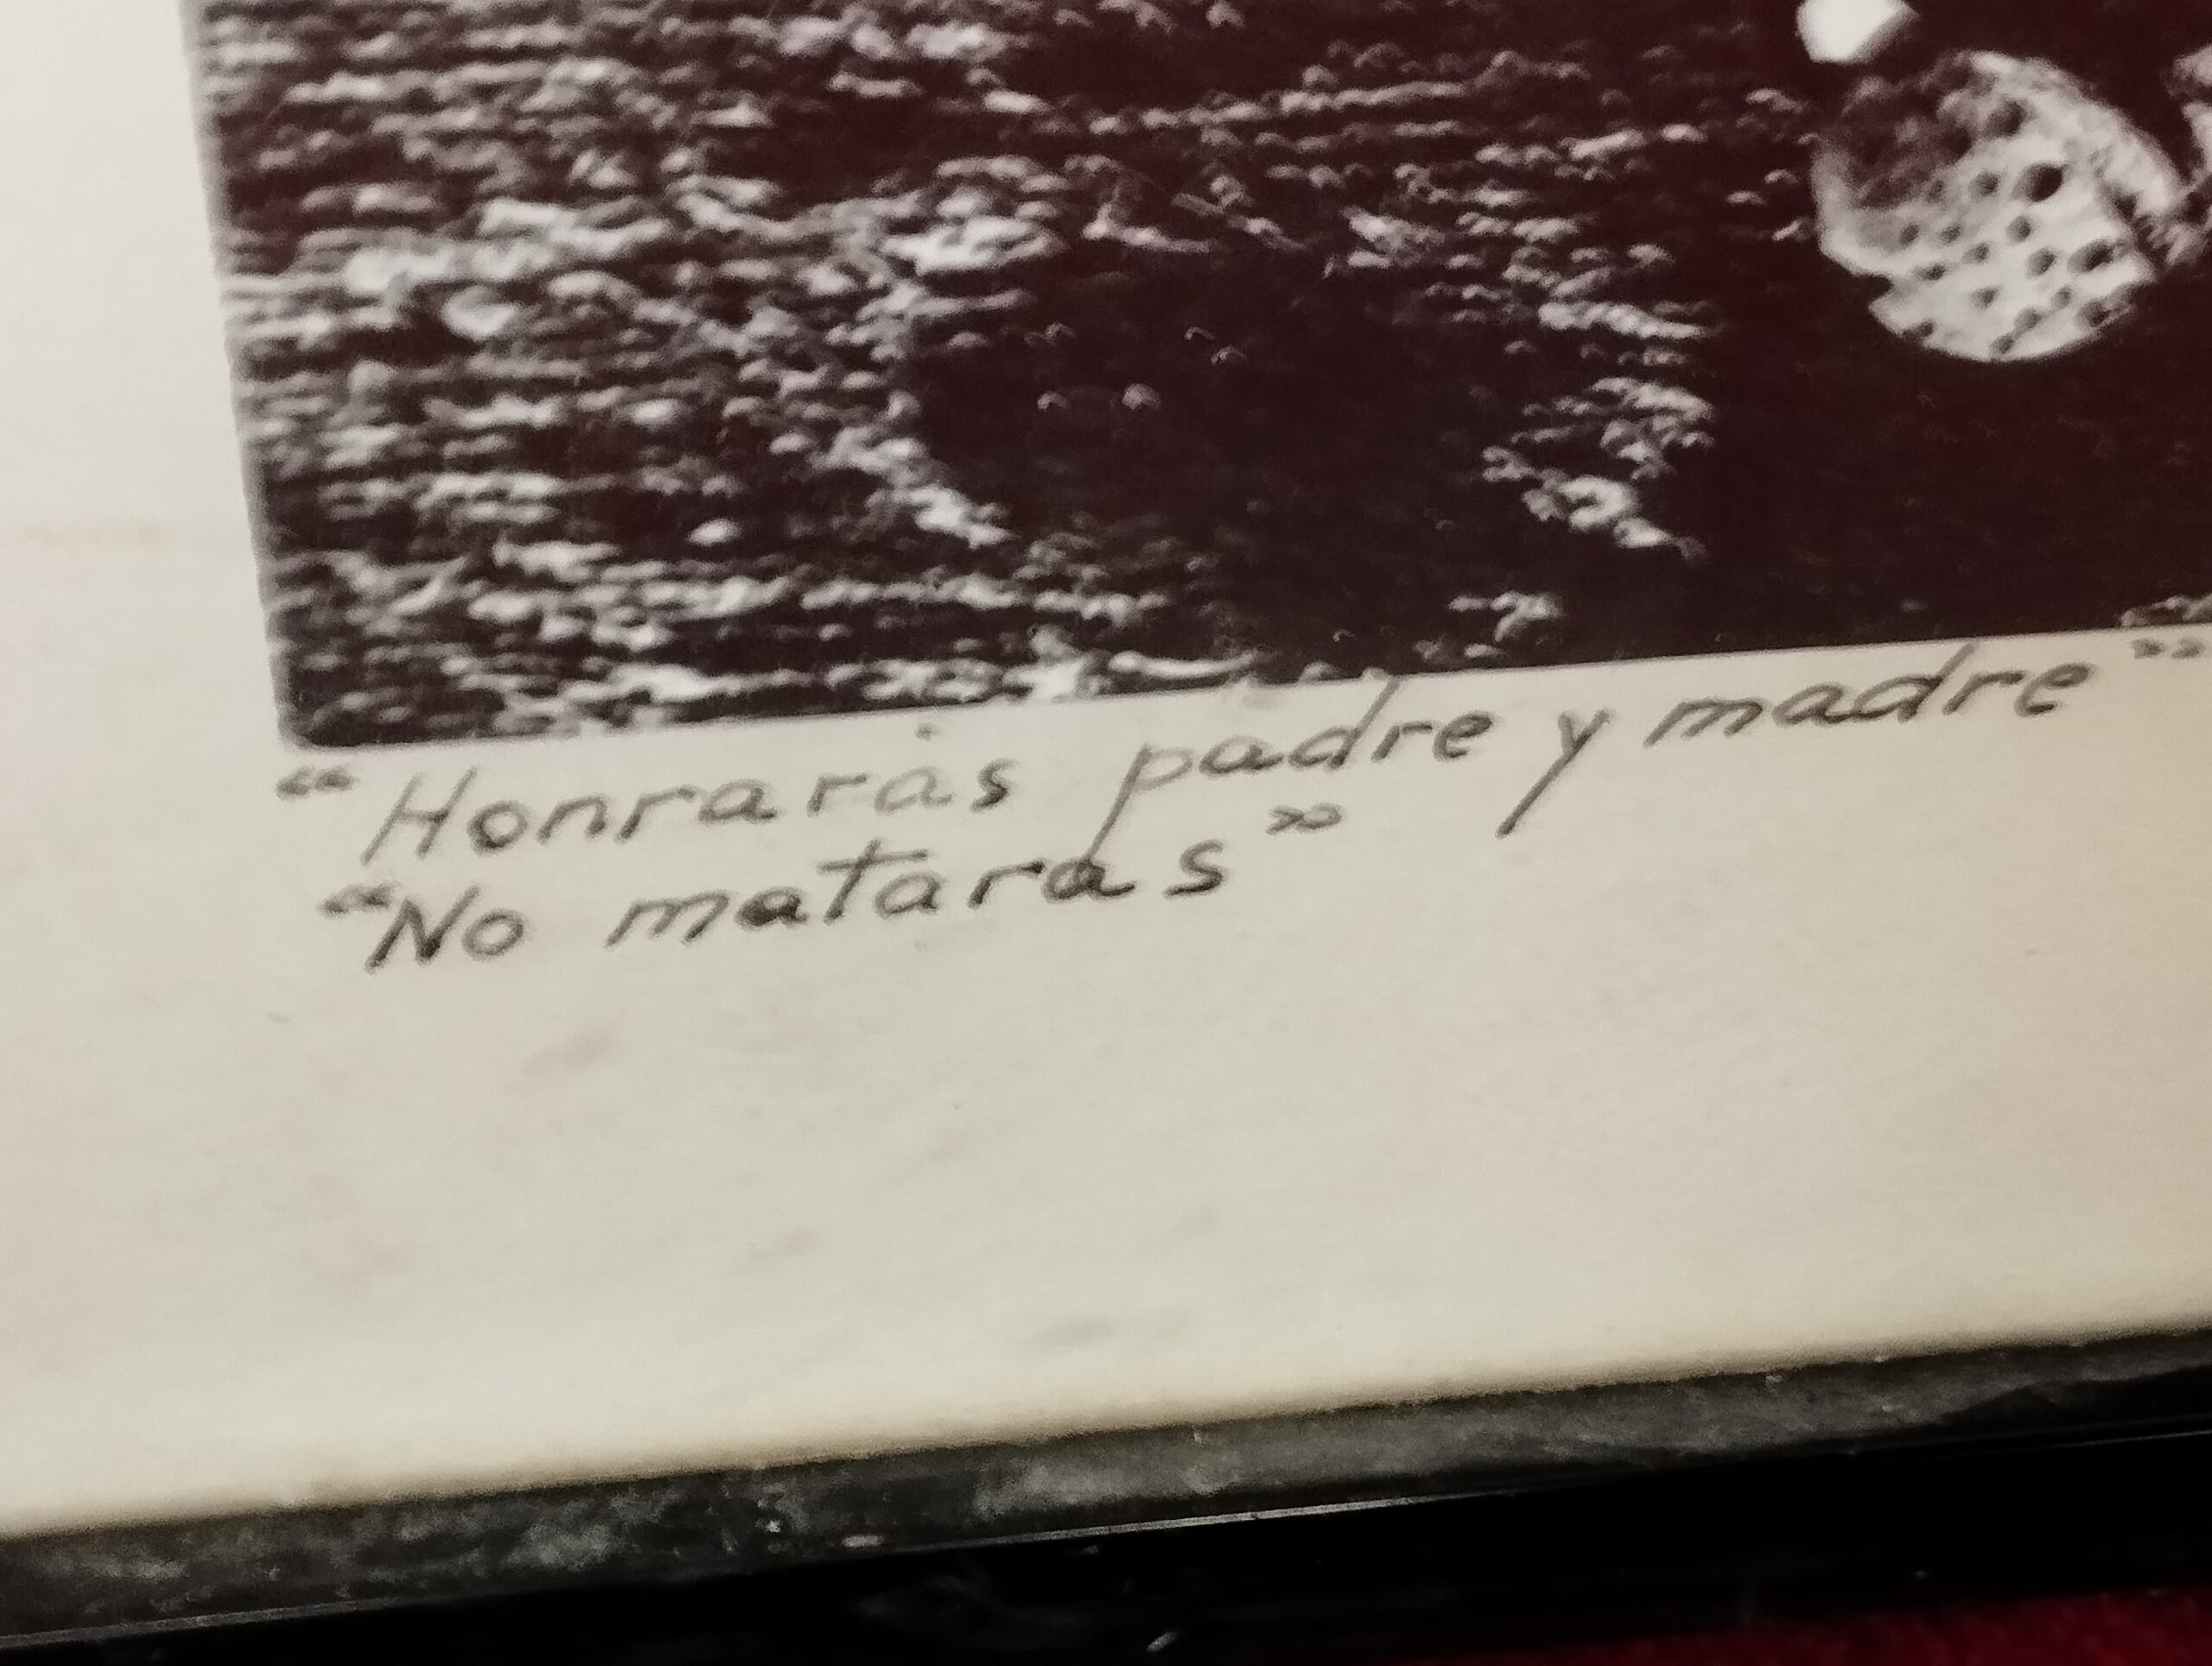 “Honrarás padre y madre”
“No mataras”